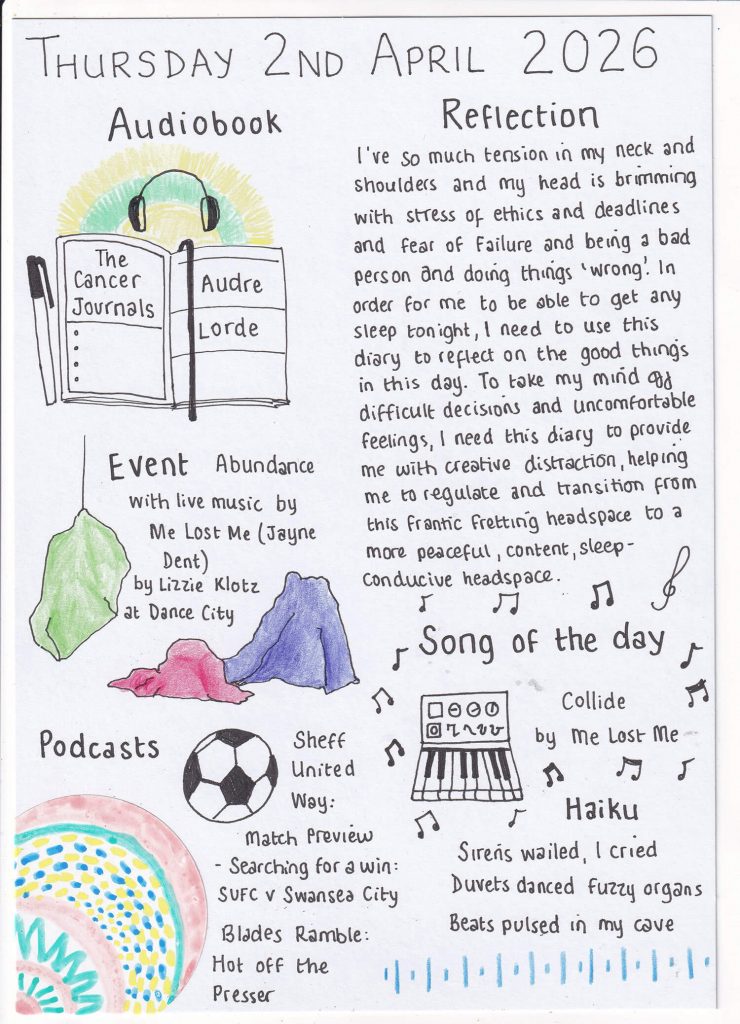 THURSDAY 2ND APRIL 2026
Audiobook
The
Cancer
Journals
Audre
Lorde
Reflection
I've so much tension in my neck and
shoulders and my head is brimming
with stress of ethics and deadlines
and fear of failure and being a bad
person and doing things 'wrong'. In
order for me to be able to get any
sleep tonight, I need to use this
diary to reflect on the good things
in this day. To take my mind off
difficult decisions and uncomfortable
feelings, I need this diary to provide
me with creative distraction, helping
me to regulate and transition from
this frantic fretting headspace to a
more peaceful, content, sleep-
conducive headspace.
Event Abundance
with live music by
Me Lost Me (Jayne
Dent)
by Lizzie Klotz
at Dance City
Song of the day
Collide
by Me Lost Me
Podcasts
Sheff
United
Way:
Match Preview
- Searching for a win:
SUFC v Swansea City
Blades Ramble:
Hot off the
Presser
Haiku
Sirens wailed, I cried
Duvets danced fuzzy organs
Beats pulsed in my cave